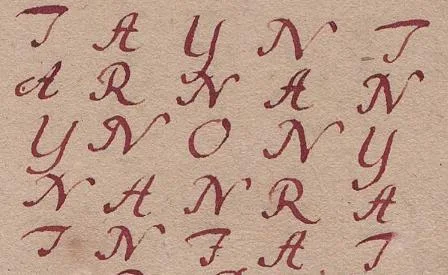 T A Y N T
A R N A N
Y N O N Y
N A N R A
T N F A T